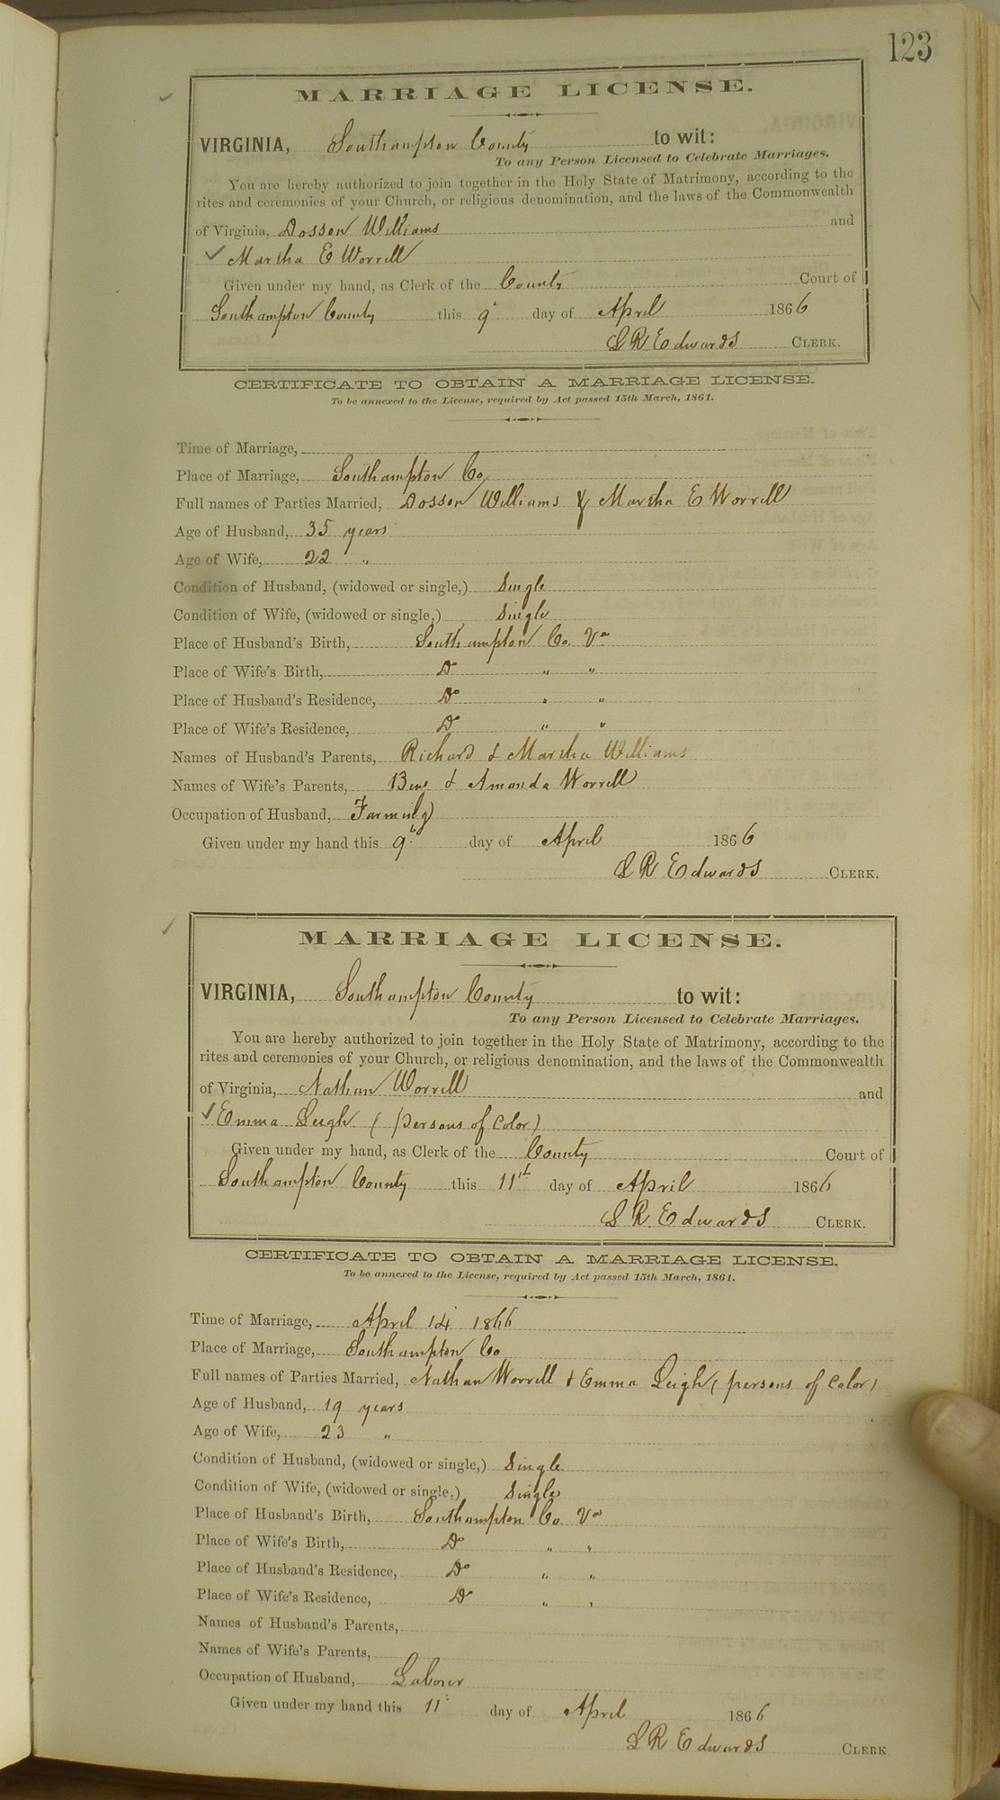 123
MARRIAGE LICENSE.
VIRGINIA, Southampton County to wit:
To any Person Licensed to Celebrate Marriages.
You are hereby authorized to join together in the Holy State of Matrimony, according to the
rites and ceremonies of your Church, or religious denomination, and the laws of the Commonwealth
of Virginia, Dossen Williams and
Martha E Worrell
Given under my hand, as Clerk of the County Court of
Southampton County this 9 day of April 1866
L R Edwards CLERK.
CERTIFICATE TO OBTAIN A MARRIAGE LICENSE.
To be annexed to the License, required by Act passed 15th March, 1861.
Time of Marriage,
Place of Marriage, Southampton Co
Full names of Parties Married, Dossen Williams & Martha E Worrell
Age of Husband, 35 years
Age of Wife, 22 "
Condition of Husband, (widowed or single,) Single
Condition of Wife, (widowed or single,) Single
Place of Husband's Birth, Southampton Co. Va
Place of Wife's Birth, Do " "
Place of Husband's Residence, Do " "
Place of Wife's Residence, Do " "
Names of Husband's Parents, Richard & Martha Williams
Names of Wife's Parents, Benj & Amanda Worrell
Occupation of Husband, Farming
Given under my hand this 9th day of April 1866
L R Edwards CLERK.
MARRIAGE LICENSE.
VIRGINIA, Southampton County to wit:
To any Person Licensed to Celebrate Marriages.
You are hereby authorized to join together in the Holy State of Matrimony, according to the
rites and ceremonies of your Church, or religious denomination, and the laws of the Commonwealth
of Virginia, Nathan Worrell and
Emma Leigh (persons of Color)
Given under my hand, as Clerk of the County Court of
Southampton County this 11th day of April 1866
L R. Edwards CLERK.
CERTIFICATE TO OBTAIN A MARRIAGE LICENSE.
To be annexed to the License, required by Act passed 15th March, 1861.
Time of Marriage, April 14 1866
Place of Marriage, Southampton Co
Full names of Parties Married, Nathan Worrell & Emma Leigh (persons of Color)
Age of Husband, 19 years
Age of Wife, 23 "
Condition of Husband, (widowed or single,) Single
Condition of Wife, (widowed or single,) Single
Place of Husband's Birth, Southampton Co. Va
Place of Wife's Birth, Do " "
Place of Husband's Residence, Do " "
Place of Wife's Residence, Do " "
Names of Husband's Parents,
Names of Wife's Parents,
Occupation of Husband, Laborer
Given under my hand this 11 day of April 1866
L R Edwards CLERK